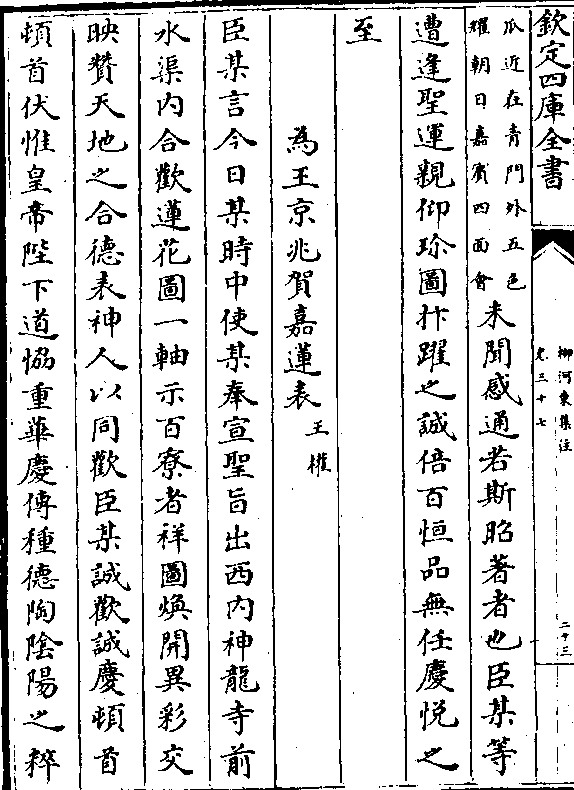 欽定四庫全書
柳河東集注
卷三十七
二十三
瓜近在青門外五色
耀朝日嘉賓四面會
未聞感通若斯昭著者也臣某等
遭逢聖運親仰珍圖抃躍之誠倍百恒品無任慶悦之
至
為王京兆賀嘉蓮表
王權
臣某言今日某時中使某奉宣聖旨出西内神龍寺前
水渠内合歡蓮花圖一軸示百寮者祥圖煥開異彩交
映贊天地之合德表神人以同歡臣某誠歡誠慶頓首
頓首伏惟皇帝陛下道恊重華慶傳種德陶陰陽之粹